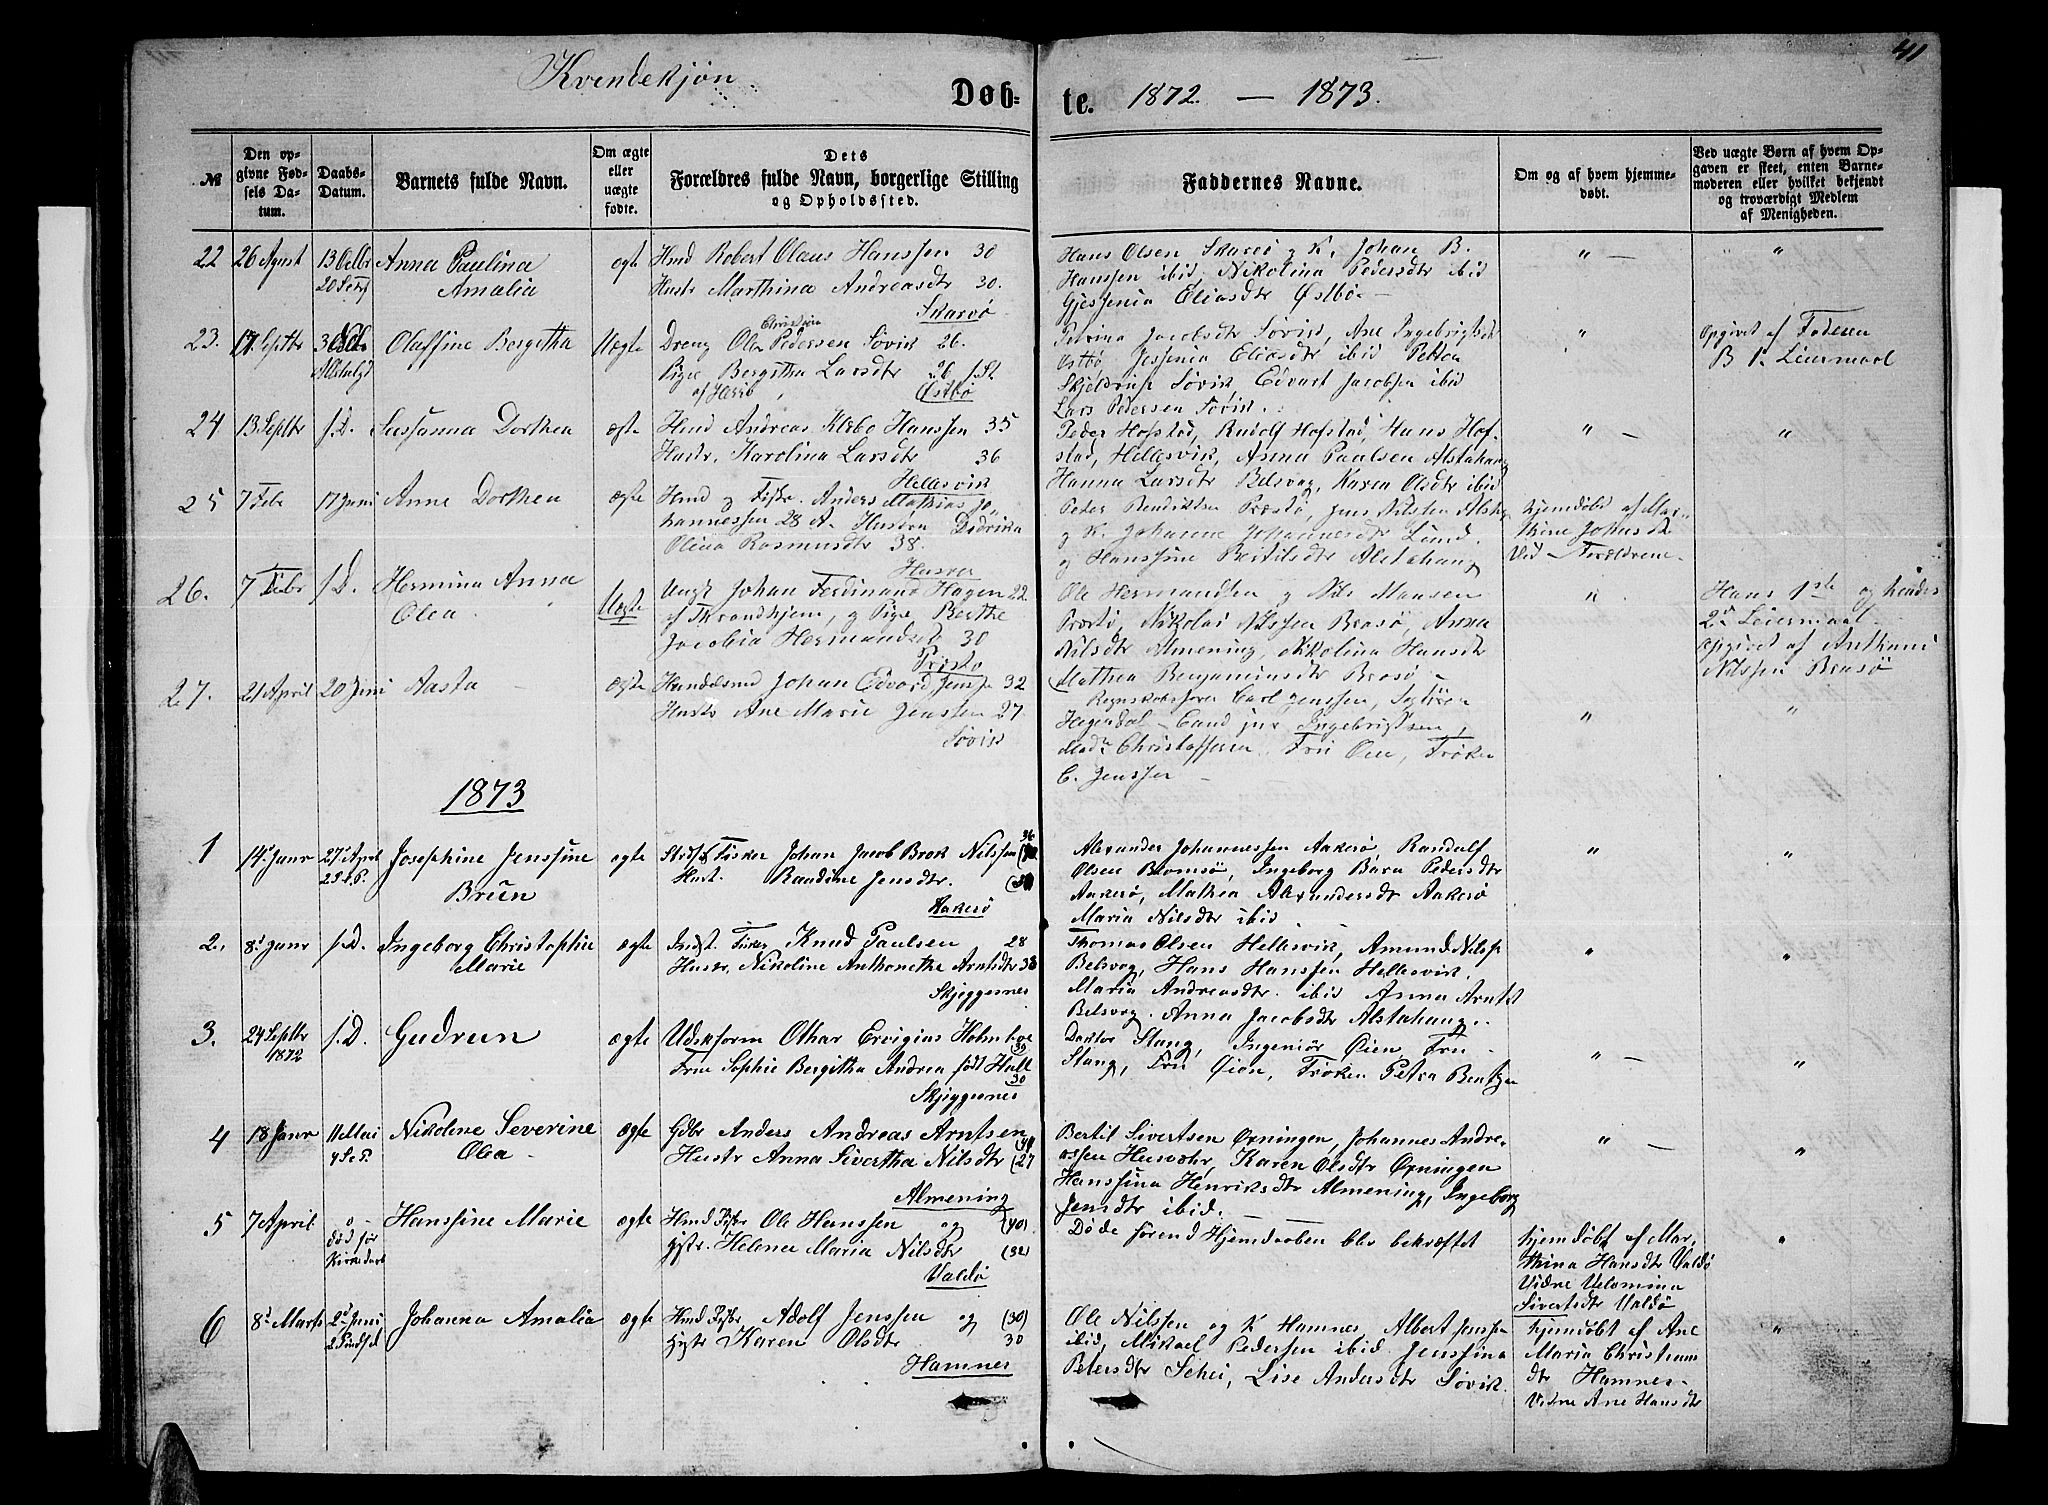 Kvindekjøn
Døb-
te. 1872. — 1873.
41
№
Den op-
givne Fød-
sels Da-
tum.
Daabs-
Datum.
Barnets fulde Navn.
Om ægte
eller
uægte
fødte.
Dets
Forældres fulde Navn, borgerlige Stilling
og Opholdssted.
Faddernes Navne.
Om og af hvem hjemme-
døbt.
Ved uægte Børn af hvem Op-
gaven er skeet, enten Barne-
moderen eller hvilket bekjendt
og troværdigt Medlem
af Menigheden.
22
26 Agust
13 Octbr
Anna Paulina
Amalia
ægte
Hmd Robert Olaus Hanssen 30
Hustr Marthina Andreasdtr 30.
Skarsø
Hans Olsen Skarsø og K. Johan B.
Hanssen ibid Nikolina Pedersdtr ibid
Gjessenia Eliasdtr Østbø —
" —
"
23.
17 Septbr
Oluffine Bergitha
Uægte
Christian
Dreng Ole Pedersen Søvik 26.
Pige Bergitha Larsdtr 26 f. St
af Herø
Østbø
Petrina Jacobsdtr Søvik, Ane Ingebrigtsdt
Østbø Jessenia Eliasdtr ibid Petter
Skjeldrup Søvik, Edvart Jacobsen ibid
Lars Pedersen Søvik.
"
Opgivet af Faderen
B 1. Leiermaal
24
13 Septbr
f. D.
Sussanna Dorthea
ægte
Hmd Andreas Klæbo Hanssen 35
Hustr. Karolina Larsdtr 36
Hellesvik
Peder Hofstad, Rudolf Hofstad, Hans Hof-
stad, Hellesvik, Anna Paulsen Alstahaug
Hanna Larsdtr Belsvag, Karen Olsdtr ibid
" —
"
25
7 Febr
17 Juni
Anne Dorthea
ægte
Hmd og Fisker. Anders Mathias Jo-
hannessen 28 A. Hustru Didrika
Olina Rasmusdtr 38.
Husvær
Peder Bendiktsen Præstø, Jens Nilsen Alsth
og K. Johanne Johannesdtr Lund.
og Hanssine Bertilsdtr Alstahaug
Hjemdøbt af Mar-
thine Johnsdtr
Vid — Forældrene —
26.
7 Febr
f. D.
Hermina Anna
Olea.
Uægte
Ungk Johan Ferdinand Hagen 22
af Throndhjem, og Pige Berthe
Jacobia Hermandsdtr 30
Prestø
Ole Hermandsen og Nils Mansen
Prestø, Nikolai Nilssen Brasø, Anna
Nilsdtr Almening, Nikolina Hansdtr
Mathea Benjaminsdtr Brasø —
"
Hans 1ste og hendes
2d Leiermaal
opgivet af Anthoni
Nilssen Brasø
27.
21 April
20 Juni
Aasta —
ægte
Handelsmd Johan Edvard Jenssen 32
Hustr Ane Marie Jenssen 27
Søvik
Regnskabsfører Carl Jenssen,
Hegerdal — Cand jur Ingebrigtsen,
Mad. Christoffersen Fru Øien, Frøken
C. Jenssen —
"
"
1873
1
14d Janr
27d April
2 S. e. P.
Josephine Jenssine
Brun
ægte
Fisker Johan Jacob Brok Nilssen 36
Hust. Randine Jensdtr.
Aakerø
Alexander Johannessen Aakerø Randulf
Olsen Blomsø, Ingeborg Bara Pedersdtr
Aakerø, Mathea Alexandersdt Aakerø
Maria Nilsdtr ibid
"
"
2.
8d Janr
f. D.
Ingeborg Christophie
Marie
ægte
Indst. Fisker Knud Paulsen 28
Hustr. Nikoline Anthonethe Arntsdtr 38
Skjeggesnes
Thomas Olsen Hellesvik, Amund Nilss
Belsvog, Hans Hanssen Hellesvik.
Maria Andreasdtr. ibid Anna Arntsd
Belsvog. Anna Jacobsdtr Alstahaug.
"
"
3.
24 Septbr
1872
f. D.
Gudrun
ægte
Udskform Othar Ervigius Holmboe
39
Frue Sophie Bergitha Andrea født Hall
30
Skjeggesnes
Doktor Stang, Ingeniør Øien Fru —
Stang, Fru Øien, Frøken Petra Bentzen
" —
"
4
18 Janr
11 Mai
4 S. e. P.
Nikoline Severine
Olea —
ægte
Gdbr Anders Andreas Arntsen (40
Hustr Anna Sivertha Nilsdtr (27
Almening
Bertil Sivertsen Øxningen, Johannes Andre-
assen Husvær, Karen Olsdtr Øxningen
Hanssina Henriksdtr Almening, Ingeborg
Jensdtr ibid. —
" —
"
5
7 April
død før
Kirkedaab
Hanssine Marie
ægte
Hmd Fisker Ole Hanssen og (40)
Hustr. Helena Maria Nilsdtr (32)
Valdø
Døde førend Hjemdaaben blev bekræftet
Hjemdøbt af Mar-
thina Hansdtr Valdø
Vidne Velomina
Sivertsdtr Valdø
"
6
8d Marts
2d Juni
2 Pindsed
Johanna Amalia
ægte
Hmd Fisker Adolf Jenssen og (30)
Hustr Karen Olsdtr 30
Hamnes
Ole Nilssen og K Hamnes, Albert Jenssen
ibid, Mikael Pedersen ibid Jenssina
Petersdtr Schei, Lise Andersdtr Søvik.
Hjemdøbt af Ane
Maria Christians
dtr Hamnes —
Vidne Ane Hansdtr
"